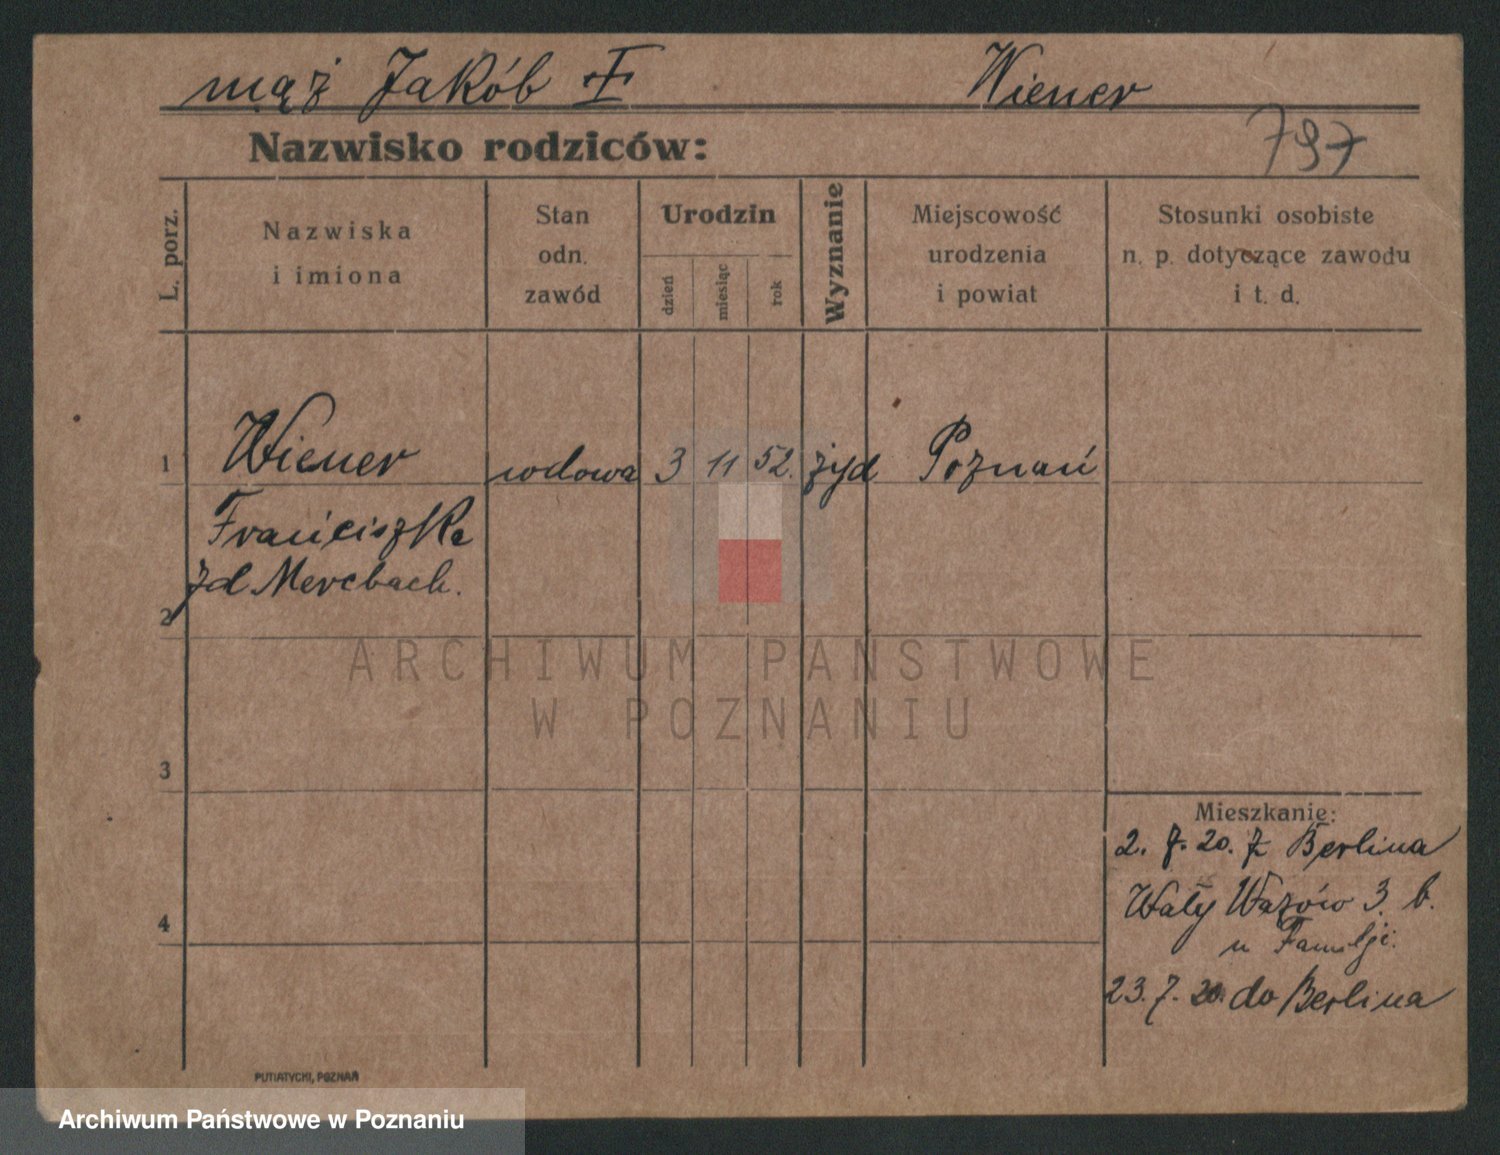 mąż Jakób Ɨ Wiener
Nazwisko rodziców:
797
L. porz.
Nazwiska
i imiona
Stan
odn.
zawód
Urodzin
dzień
miesiąc
rok
Wyznanie
Miejscowość
urodzenia
i powiat
Stosunki osobiste
n. p. dotyczące zawodu
i t. d.
1 Wiener wdowa 3 11 52. żyd Poznań
Franciszka
zd Mercbach.
2
3
4
Mieszkanie:
2. 7. 20. z Berlina
Wały Wazów 3. b.
u Familji.
23. 7. 20. do Berlina
PUTIATYCKI, POZNAŃ
ARCHIWUM PAŃSTWOWE
W POZNANIU
Archiwum Państwowe w Poznaniu